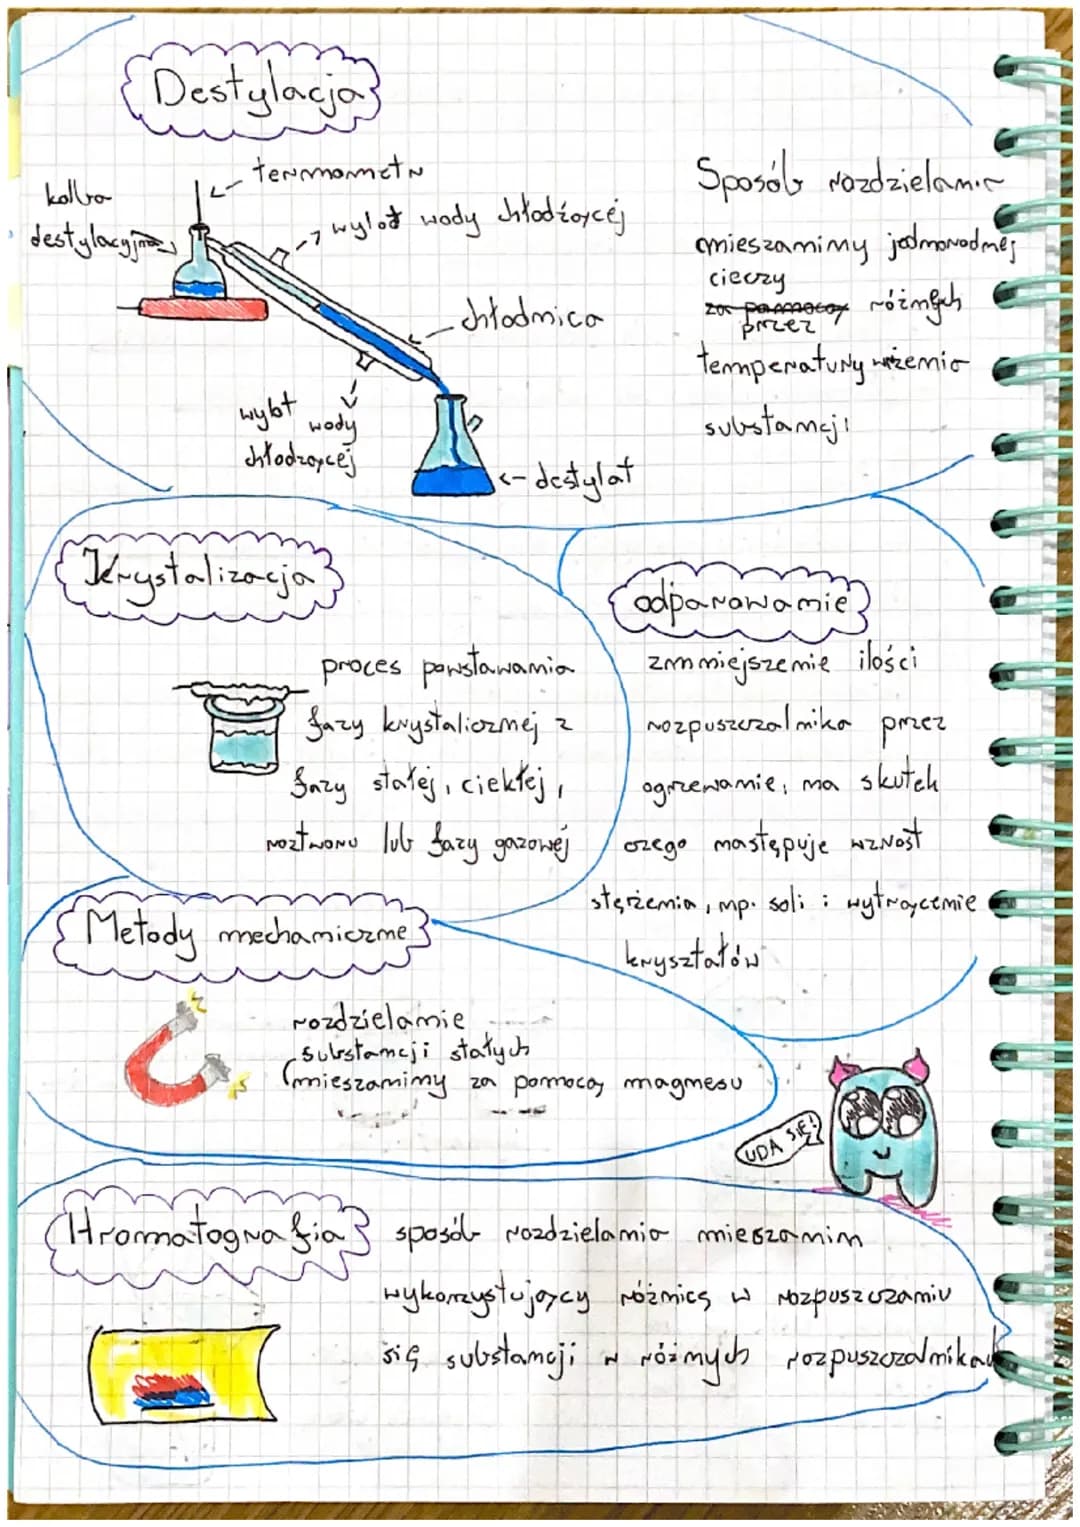 Destylacja
termometr
kolba
destylacyjna
wylot wody chłodzącej
chłodnica
wylot wody
chłodzącej
destylat
Sposób rozdzielania
mieszaniny jednorodnej
cieczy
za pomocą różnych
przez
temperatury wrzenia
substancji
Krystalizacja
proces powstawania
fazy krystalicznej z
fazy stałej, ciekłej,
roztworu lub fazy gazowej
odparowanie
zmniejszenie ilości
rozpuszczalnika przez
ogrzewanie, na skutek
czego następuje wzrost
stężenia, np. soli i wytrącenie
kryształów
Metody mechaniczne
rozdzielanie
substancji stałych
(mieszaniny za pomocą magnesu
UDA SIĘ!
Hromatografia
sposób rozdzielania mieszanin
wykorzystujący różnicę w rozpuszczaniu
się substancji w różnych rozpuszczalnikach